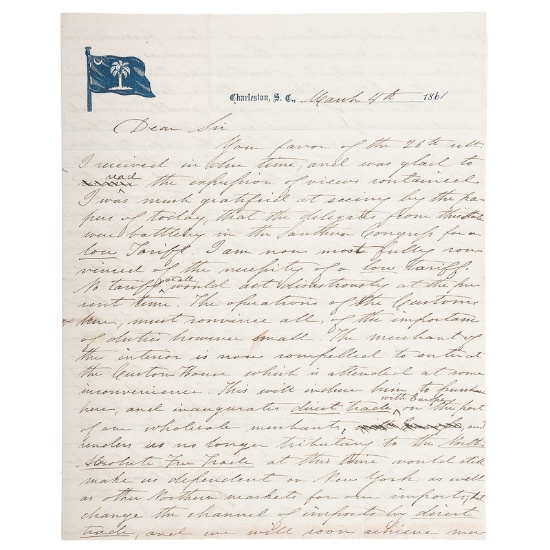 Charleston, S. C., March 4th 1861
Dear Sir
Your favor of the 26th ult.
I received in due time, and was glad to
read the expression of views contained.
I was much gratified at seeing by the pa-
per of today, that the delegates from this State
were battling in the Southern Congress for a
low Tariff. I am now most fully con-
vinced of the necessity of a low tariff.
No tariff at all would act disastrously at the pre-
sent time. The operations of the Customs
here, must convince all, of the importance
of duties however small. The merchant of
the interior is now compelled to enter at
the Custom House which is attended at some
inconvenience. This will induce him to purchase
here, and inaugurates direct trade with Europe on the part
of our wholesale merchants, and
renders us no longer tributary to the North.
Absolute Free Trade at this time would still
make us dependent on New York as well
as other Northern markets for our imports;
change the channel of imports by direct
trade, and we will soon achieve